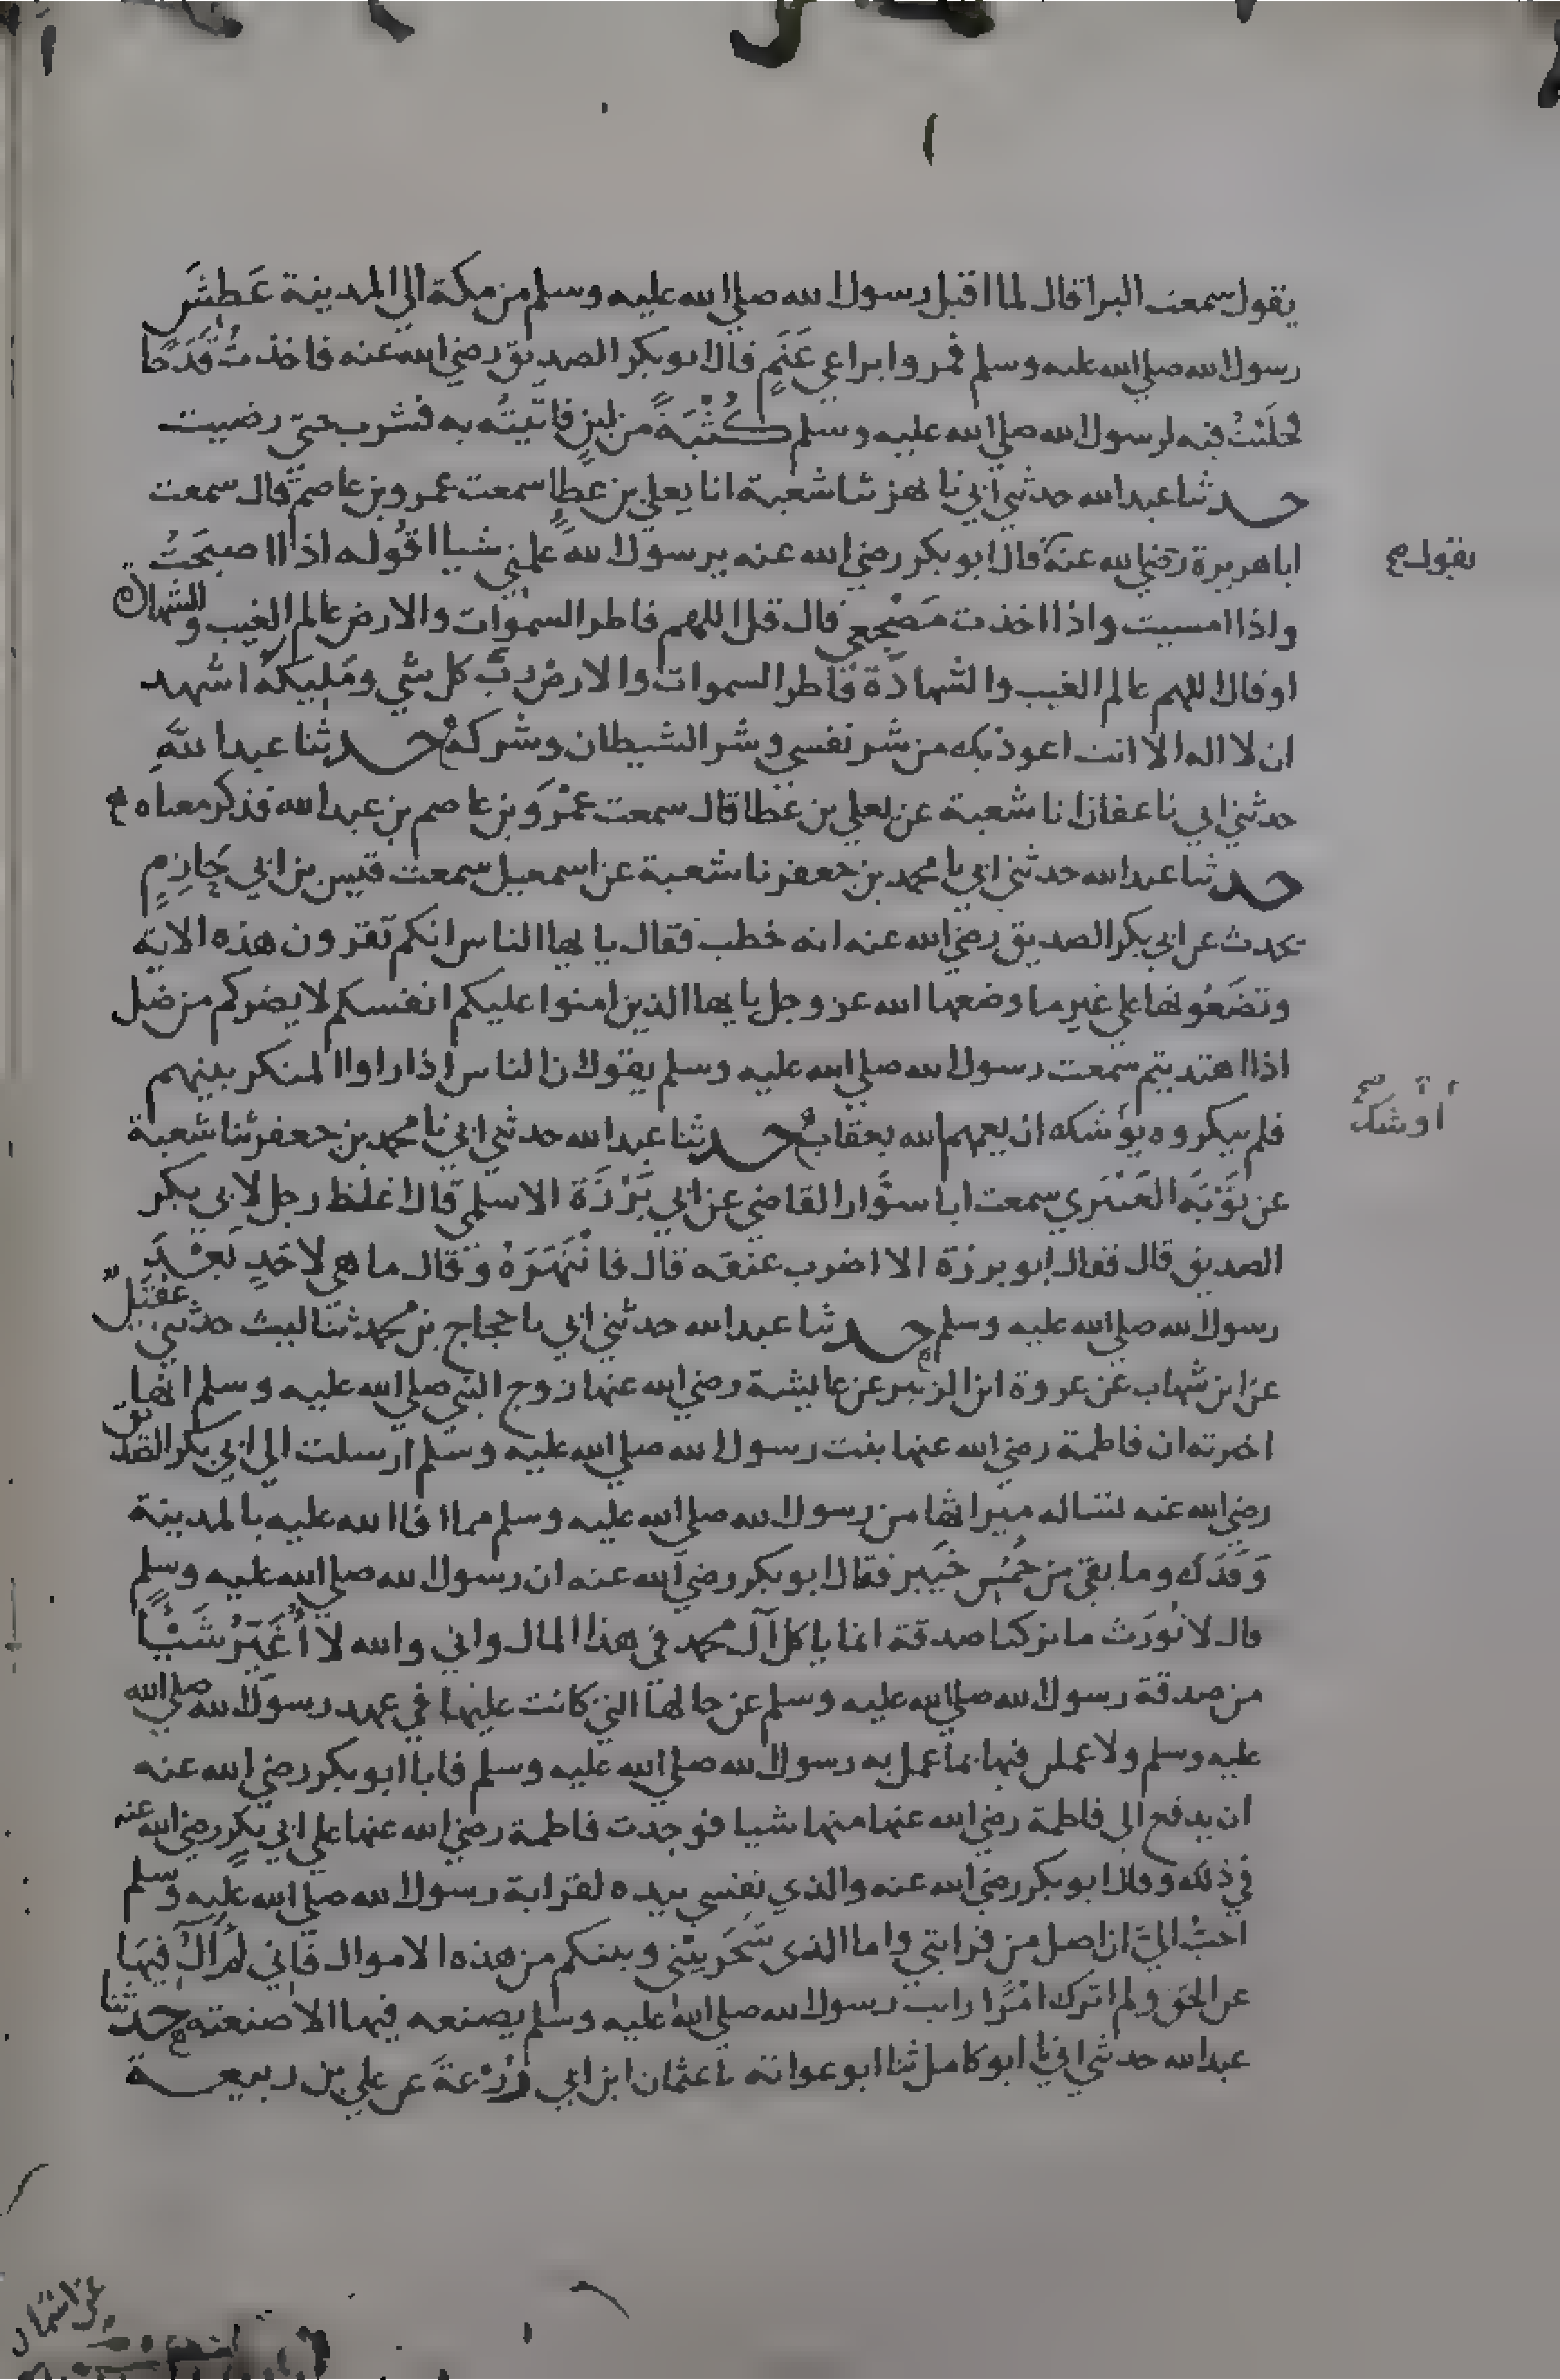 يقول سمعت البرا قال لما اقبل رسول الله صلي الله عليه وسلم من مكة الي المدينة عَطِشَ
رسول الله صلي الله عليه وسلم فمروا براعي غَنَمٍ قال ابو بكر الصديق رضي الله عنه فاخذتُ قَدَحًا
فحلَبْتُ فيه لرسول الله صلي الله عليه وسلم كُثْبَةً من لبنٍ فاتيتُه به فشرب حتي رضيت
حدثنا عبد الله حدثني ابي نا بهز ثنا شعبة انا يعلي بن عطا سمعت عمرو بن عاصم قال سمعت
ابا هريرة رضي الله عنه قال ابو بكر رضي الله عنه يرسول الله علمني شيا اقوُله اذا اصبحَتُ
يقول صح
واذا امسيت واذا اخذت مَضْجعي قال قل اللهم فاطر السموات والارض عالم الغيب والشهادة
او قال اللهم عالم الغيب والشهادة فاطر السموات والارض ربَّ كل شي ومَليكَهُ اشهد
ان لا اله الا انت اعوذ بك من شر نفسي وشر الشيطان وشركه حدثنا عبد الله
حدثني ابي نا عفان نا شعبة عن يعلي بن عطا قال سمعت عمْرَو بن عاصم بن عبد الله فذكر معناه
حدثنا عبد الله حدثني ابي نا محمد بن جعفر نا شعبة عن اسمعيل سمعت قيس بن ابي حَازِمٍ
يحدث عن ابي بكر الصديق رضي الله عنه انه خطب فقال يا يها الناس انكم تقرون هذه الاية
وتضَعُونها علي غير ما وضعها الله عز وجل يا يها الذين امنوا عليكم انفسكم لا يضركم من ضل
اذا اهتديتم سمعت رسول الله صلي الله عليه وسلم يقول ان الناس اذا راوا المنكر بينهم
فلم ينكروه يوشك ان يعمهم الله بعقاب حدثنا عبد الله حدثني ابي نا محمد بن جعفر ثنا شعبة
اوشك صح
عن تَوْبَةَ العَنْبَري سمعت ابا سوَّار القاضي عن ابي بَرْزَة الاسلمي قال اغلظ رجل لابي بكر
الصديق قال فقال ابو برزة الا اضرب عنقه قال فانْتَهَرَهُ وقال ما هي لاحَدٍ بَعْدَ
رسول الله صلي الله عليه وسلم حدثنا عبد الله حدثني ابي نا حجاج بن محمد ثنا ليث حدثني عقَيْلٌ
عن ابن شهاب عن عروة ابن الزبير عن عايشة رضي الله عنها زوج النبي صلي الله عليه وسلم انها
اخبرته ان فاطمة رضي الله عنها بنت رسول الله صلي الله عليه وسلم ارسلت الي ابي بكر الصديق
رضي الله عنه تساله ميراثها من رسول الله صلي الله عليه وسلم مما افا الله عليه بالمدينة
وَفَدَك وما بقي من خُمُس خَيبر فقال ابو بكر رضي الله عنه ان رسول الله صلي الله عليه وسلم
قال لا نُورَث ما تركنا صدقة انما ياكل آل محمد في هذا المال واني والله لا أُغَيِّرُ شَيْئًا
من صدقة رسول الله صلي الله عليه وسلم عن حالها التي كانت عليها في عهد رسول الله صلي الله
عليه وسلم ولا عملن فيها بما عمل به رسول الله صلي الله عليه وسلم فابا ابو بكر رضي الله عنه
ان يدفع الي فاطمة رضي الله عنها منها شيا فوجدت فاطمة رضي الله عنها علي ابي بكر رضي الله عنه
في ذلك وقال ابو بكر رضي الله عنه والذي نفسي بيده لقرابة رسول الله صلي الله عليه وسلم
احبُّ اليَّ ان اصل من قرابتي واما الذي شَجَر بيني وبينكم من هذه الاموال فاني لم آلُ فيها
عن الحق ولم اترك امْرًا رايت رسول الله صلي الله عليه وسلم يصنعه فيها الا صنعته حدثنا
عبد الله حدثني ابي نا ابو كامل ثنا ابو عوانة نا عثمان ابن ابي زُرْعةَ عن علي بن ربيعة